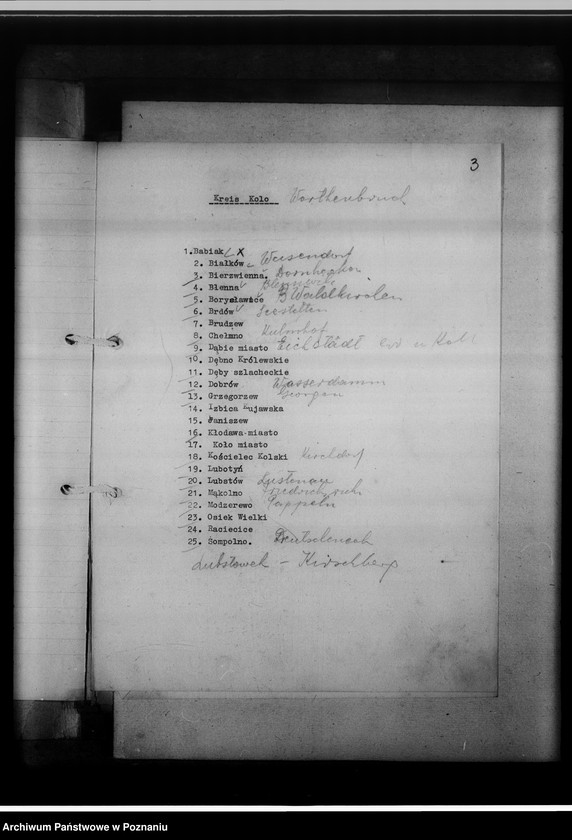 3
Kreis Kolo Warthenbruch
1. Babiak X
2. Białków
3. Bierzwienna.
4. Blenna
5. Borysławice
6. Brdów Seestetten
7. Brudzew
8. Chełmno Kulmhof
9. Dąbie miasto Eichstädt
10. Dębno Królewskie
11. Dęby szlacheckie
12. Dobrów Wasserdamm
13. Grzegorzew Georgen
14. Izbica Kujawska
15. Janiszew
16. Kłodawa-miasto
17. Koło miasto
18. Kościelec Kolski Kirchdorf
19. Lubotyń
20. Lubstów Lustenau
21. Mąkolno
22. Modzerewo Pappeln
23. Osiek Wielki
24. Raciecice
25. Sompolno. Deutscheneck
Lubstówek - Kirschberg
Archiwum Państwowe w Poznaniu